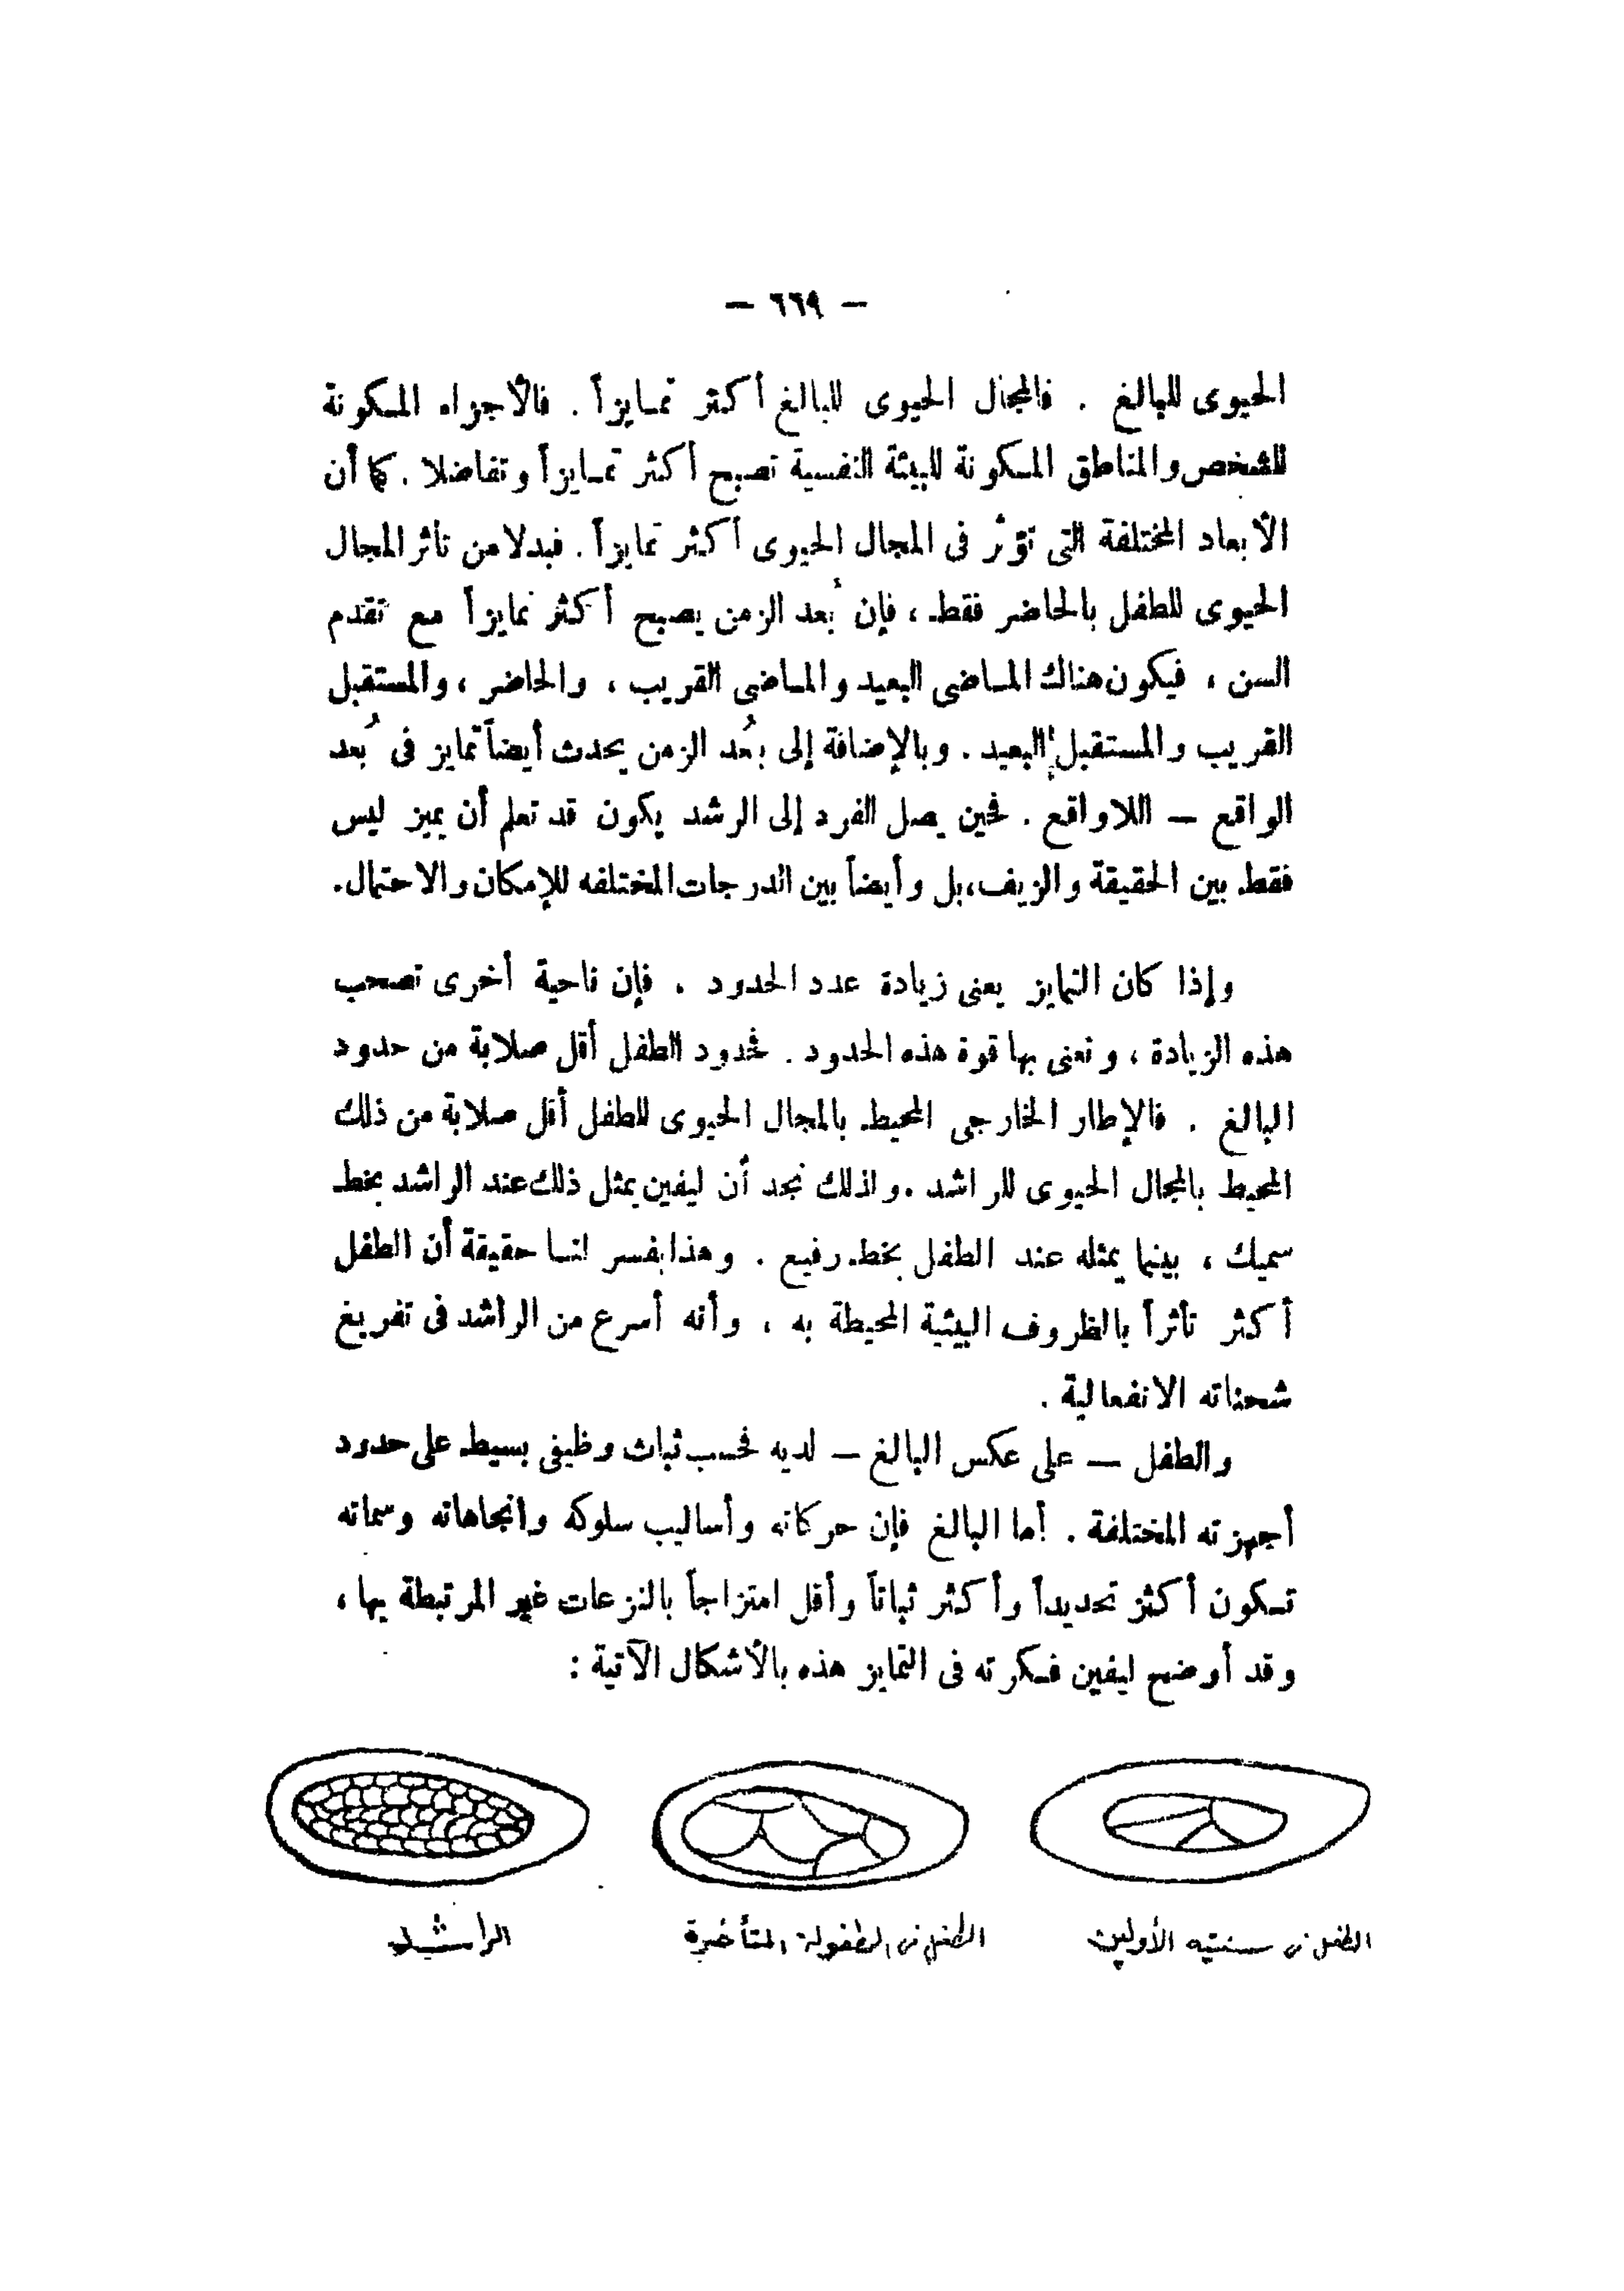 — ٦٦٩ —
الحيوى للبالغ . فالمجال الحيوى للبالغ أكثر تمايزاً . فالأجزاء المكونة
للشخص والمناطق المكونة للبيئة النفسية تصبح أكثر تمايزاً وتفاضلا . كما أن
الأبعاد المختلفة التى تؤثر فى المجال الحيوى أكثر تمايزاً . فبدلا من تأثر المجال
الحيوى للطفل بالحاضر فقط ، فإن بُعد الزمن يصبح أكثر تمايزاً مع تقدم
السن ، فيكون هناك الماضى البعيد والماضى القريب ، والحاضر ، والمستقبل
القريب والمستقبل البعيد . وبالإضافة إلى بُعد الزمن يحدث أيضاً تمايز فى بُعد
الواقع — اللاواقع . فحين يصل الفرد إلى الرشد يكون قد تعلم أن يميز ليس
فقط بين الحقيقة والزيف، بل وأيضاً بين الدرجات المختلفه للإمكان والاحتمال.
وإذا كان التمايز يعنى زيادة عدد الحدود . فإن ناحية أخرى تصحب
هذه الزيادة ، ونعنى بها قوة هذه الحدود . فحدود الطفل أقل صلابة من حدود
البالغ . فالإطار الخارجى المحيط بالمجال الحيوى للطفل أقل صلابة من ذلك
المحيط بالمجال الحيوى للراشد . ولذلك نجد أن ليفين يمثل ذلك عند الراشد بخط
سميك ، بينما يمثله عند الطفل بخط رفيع . وهذا يفسر لنا حقيقة أن الطفل
أكثر تأثراً بالظروف البيئية المحيطة به ، وأنه أسرع من الراشد فى تفريغ
شحناته الانفعالية .
والطفل — على عكس البالغ — لديه فحسب ثبات وظيفى بسيط على حدود
أجهزته المختلفة . أما البالغ فإن حركاته وأساليب سلوكه واتجاهاته وسماته
تكون أكثر تحديداً وأكثر ثباتاً وأقل امتزاجاً بالنزعات غير المرتبطة بها ،
وقد أوضح ليفين فكرته فى التمايز هذه بالأشكال الآتية :
الطفل فى سنتيه الأولين
الطفل فى الطفولة المتأخرة
الراشد